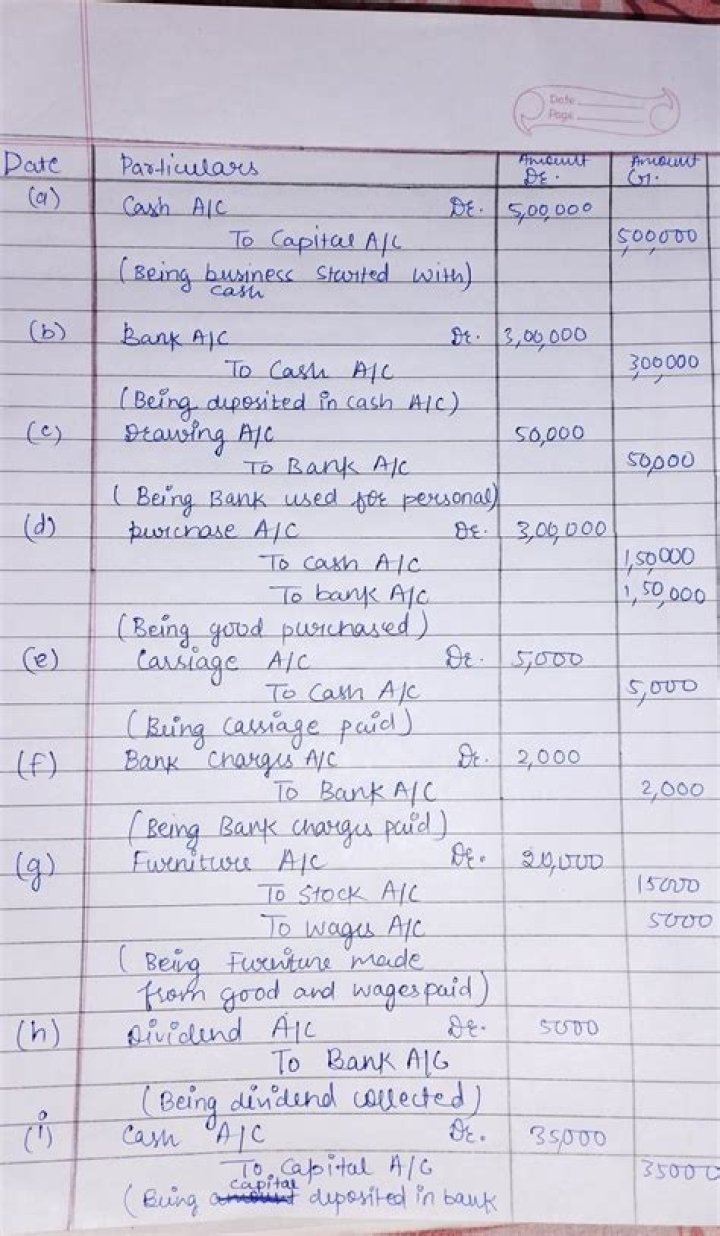 Date
Page
Date Particulars Amount Dr. Amount Cr.
(a) Cash A/C Dr. 5,00,000
To Capital A/C 5,00,000
(Being business started with)
cash
(b) Bank A/C Dr. 3,00,000
To Cash A/C 3,00,000
(Being deposited in cash A/C)
(c) Drawing A/C 50,000
To Bank A/C 50,000
(Being Bank used for personal)
(d) purchase A/C Dr. 3,00,000
To cash A/C 1,50,000
To bank A/C 1,50,000
(Being good purchased)
(e) Carriage A/C Dr. 5,000
To Cash A/C 5,000
(Being carriage paid)
(f) Bank Charges A/C Dr. 2,000
To Bank A/C 2,000
(Being Bank charges paid)
(g) Furniture A/C Dr. 20,000
To Stock A/C 15000
To Wages A/C 5000
(Being Furniture made
from good and wages paid)
(h) Dividend A/C Dr. 5000
To Bank A/C
(Being dividend collected)
(i) Cash A/C Dr. 35,000
To Capital A/C 35000
(Being capital deposited in bank